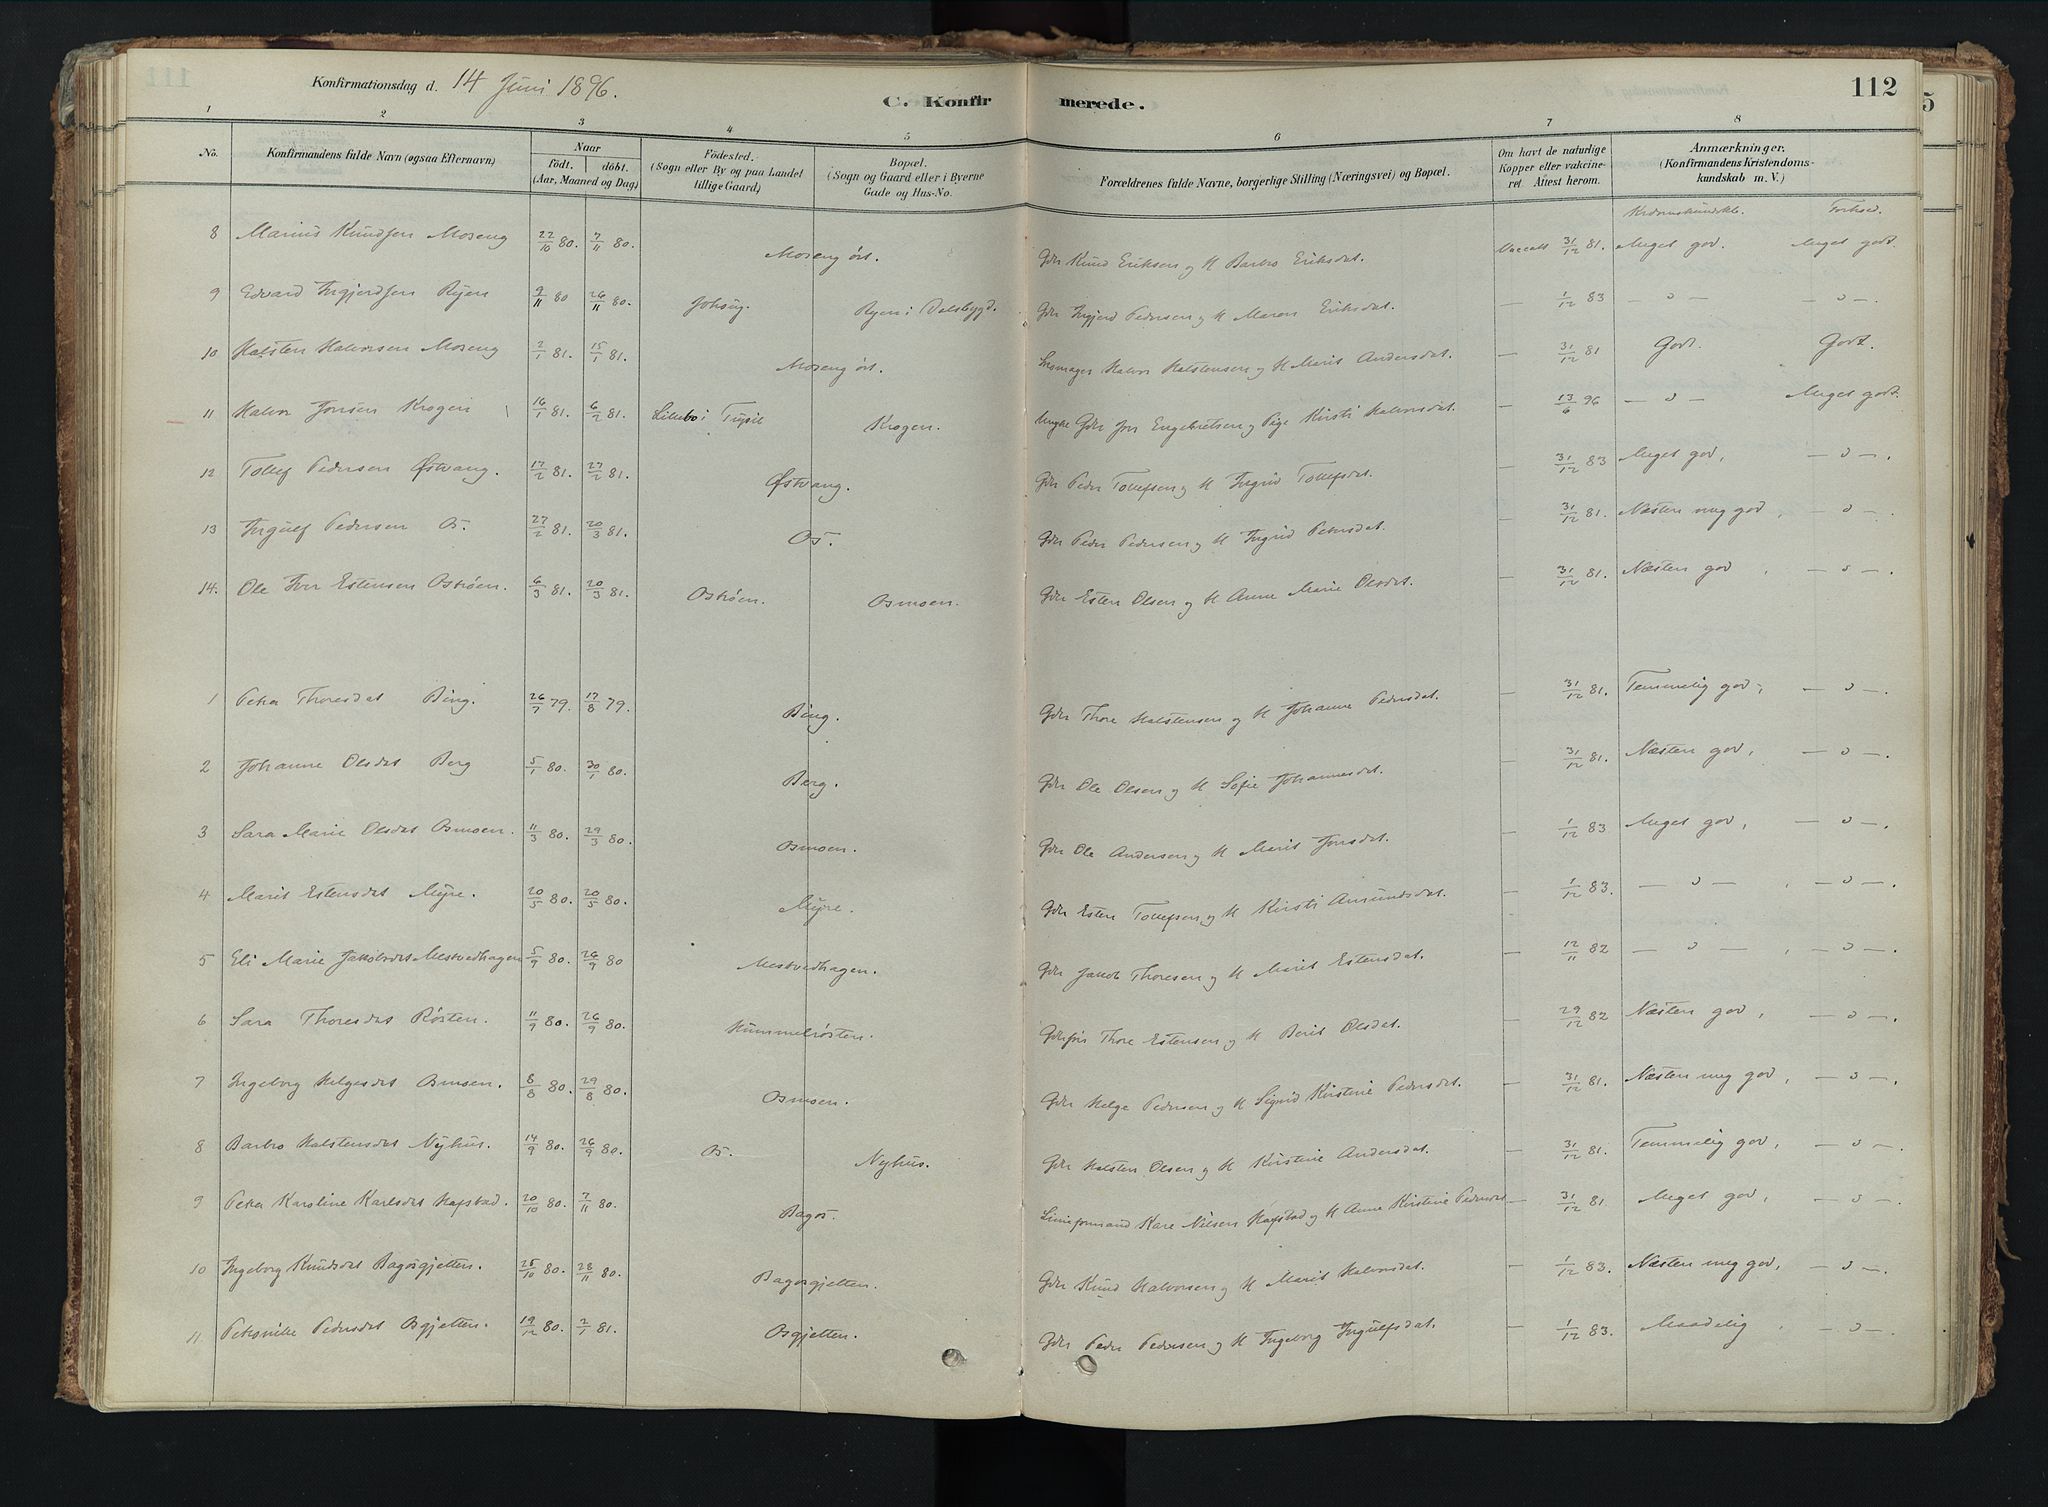 Konfirmationsdag d. 14 Juni 1896.
C. Konfirmerede.
112
1 2 3 4 5 6 7 8
No. Konfirmandens fulde Navn (ogsaa Efternavn) Naar født. døbt. (Aar, Maaned og Dag) Fødested. (Sogn eller By og paa Landet tillige Gaard) Bopæl. (Sogn og Gaard eller i Byerne Gade og Hus-No. Forældrenes fulde Navne, borgerlige Stilling (Næringsvei) og Bopæl. Om havt de naturlige Kopper eller vakcineret. Attest herom. Anmærkninger. (Konfirmandens Kristendomskundskab m. V.)
8 Marius Knudsen Moseng 22/10 80. 7/11 80. Moseng øst. Gdr Knud Eriksen og H Barbro Eriksdat. 31/12 81. Meget god. Meget godt.
9 Edvard Ingjerdsen Ryen 9/11 80 26/11 80. Ryen i Dalsbygd. Gdr Ingjerd Pedersen og H Maren Eriksdat. — 1/12 83 — " — — " —.
10 Halsten Halvorsen Moseng 2/1 81. 15/1 81. Moseng øst. Halvor Halstensen og H Marit Andersdat. — 31/12 81 Godt. Godt.
11 Halvor Jonsen Krogen 16/1 81. 6/2 81. Lillebo i Trysil Krogen. Ungke Gdr Jon Engebretsen og Pige Kirsti Halvorsdat. — 13/6 96 — " — Meget godt.
12 Tollef Pedersen Østvang. 17/2 81. 27/2 81. Østvang. Gdr Peder Tollefsen og H Ingrid Tollefsdat. — 31/12 83 Meget god, — " —.
13 Ingulf Pedersen Os. 27/2 81. 20/3 81. Os. Gdr Peder Pedersen og H Ingrid Petersdat. — 31/12 81. Næsten meg god, — " —
14. Ole Iver Estensen Osrøen. 6/3 81. 20/3 81. Osrøen. Osmoen. Gdr Esten Olsen og H Anne Marie Olsdat. — 31/12 81. Næsten god, — " —.
1 Petra Thoresdat Bing. 26/7 79. 17/8 79. Bing. Gdr Thore Halstensen og H Johanne Pedersdat. — 31/12 81. Temmelig god, — " —.
2 Johanne Olsdat Berg 5/1 80. 30/1 80. Berg. Gdr Ole Olsen og H Sofie Johannesdat. — 31/12 81. Næsten god, — " —.
3 Sara Marie Olsdat Osmoen. 11/3 80. 29/3 80. Osmoen. Gdr Ole Andersen og H Marit Jonsdat. — 1/12 83 Meget god, — " —.
4 Marit Estensdat Myre. 20/5 80. 20/5 80. Myre. Gdr Esten Tollefsen og H Kirsti Amundsdat. — 1/12 83. — " —, — " —.
5 Eli Marie Jakobsdat Mestvedhagen 5/9 80. 26/9 80 Mestvedhagen. Gdr Jakob Thoresen og H Marit Estensdat. — 12/11 82 — " —, — " —.
6 Sara Thoresdat Røsten. 11/9 80. 26/9 80. Hummelrøsten. Thore Estensen og H Berit Olsdat. — 29/12 82 Næsten god, — " —.
7 Ingeborg Helgesdat Osmoen. 8/8 80. 29/8 80. Osmoen. Gdr Helge Pedersen og H Sigrid Kirstine Pedersdat. — 31/12 81. Næsten meg god, — " —.
8 Barbro Halstensdat Nyhus. 14/9 80. 26/9 80. Os. Nyhus. Gdr Halsten Olsen og H Kirstine Andersdat. — 31/12 81. Temmelig god, — " —.
9 Petra Karoline Karlsdat Hafstad. 20/10 80. 7/11 80. Bagos. Linieformand Karl Nilsen Hafstad og H Anne Kirstine Pedersdat — 31/12 81 Meget god, — " —
10 Ingeborg Knudsdat Bagosgjetten. 25/10 80. 28/11 80. Bagosgjetten. Gdr Knud Halvorsen og H Marit Halvorsdat. — 1/12 83. Næsten meg god, — " —.
11. Pedersdat Osgjetten. 19/12 80. 2/1 81. Osgjetten. Gdr Peder Pedersen og H Ingeborg Ingulfsdat. — 1/12 83. Maadelig, — " —.